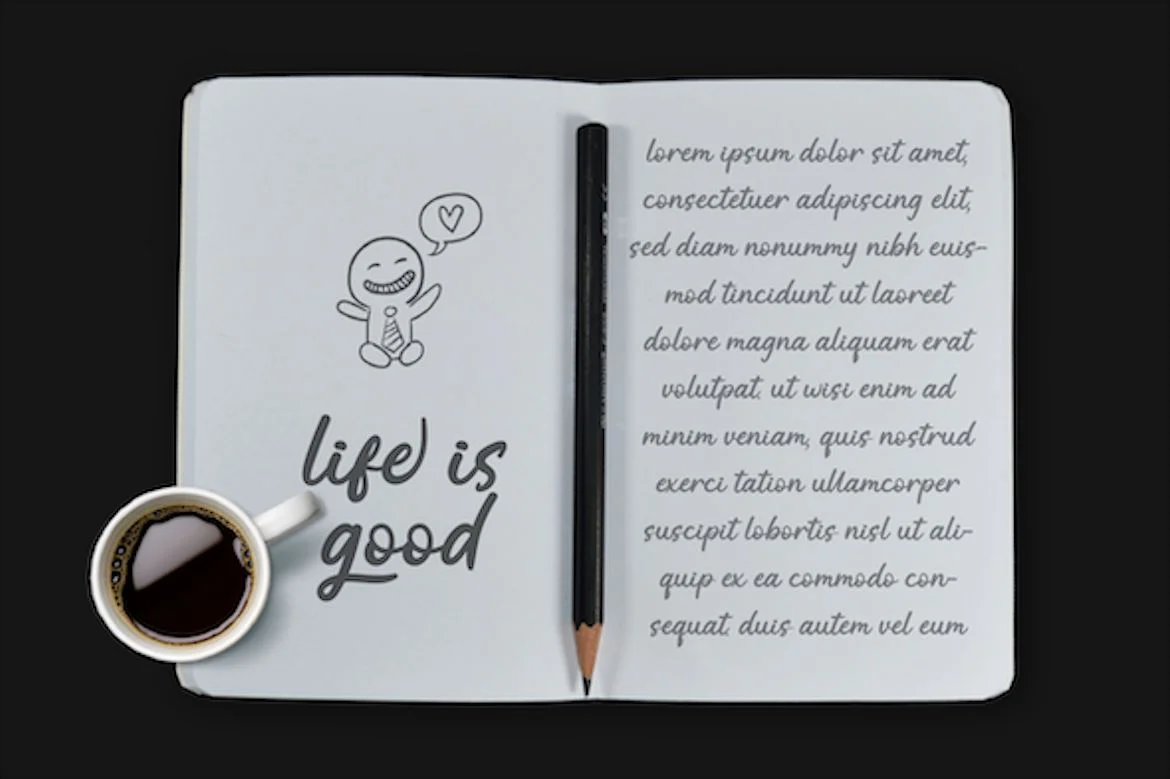 life is
good
lorem ipsum dolor sit amet,
consectetuer adipiscing elit,
sed diam nonummy nibh euis-
mod tincidunt ut laoreet
dolore magna aliquam erat
volutpat. ut wisi enim ad
minim veniam, quis nostrud
exerci tation ullamcorper
suscipit lobortis nisl ut ali-
quip ex ea commodo con-
sequat. duis autem vel eum